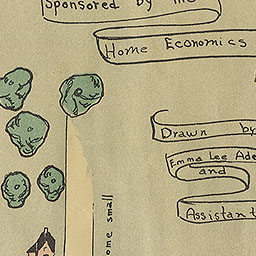 Sponsored by the
Home Economics
Drawn by
Emma Lee Ade
and
Assistant
ome small